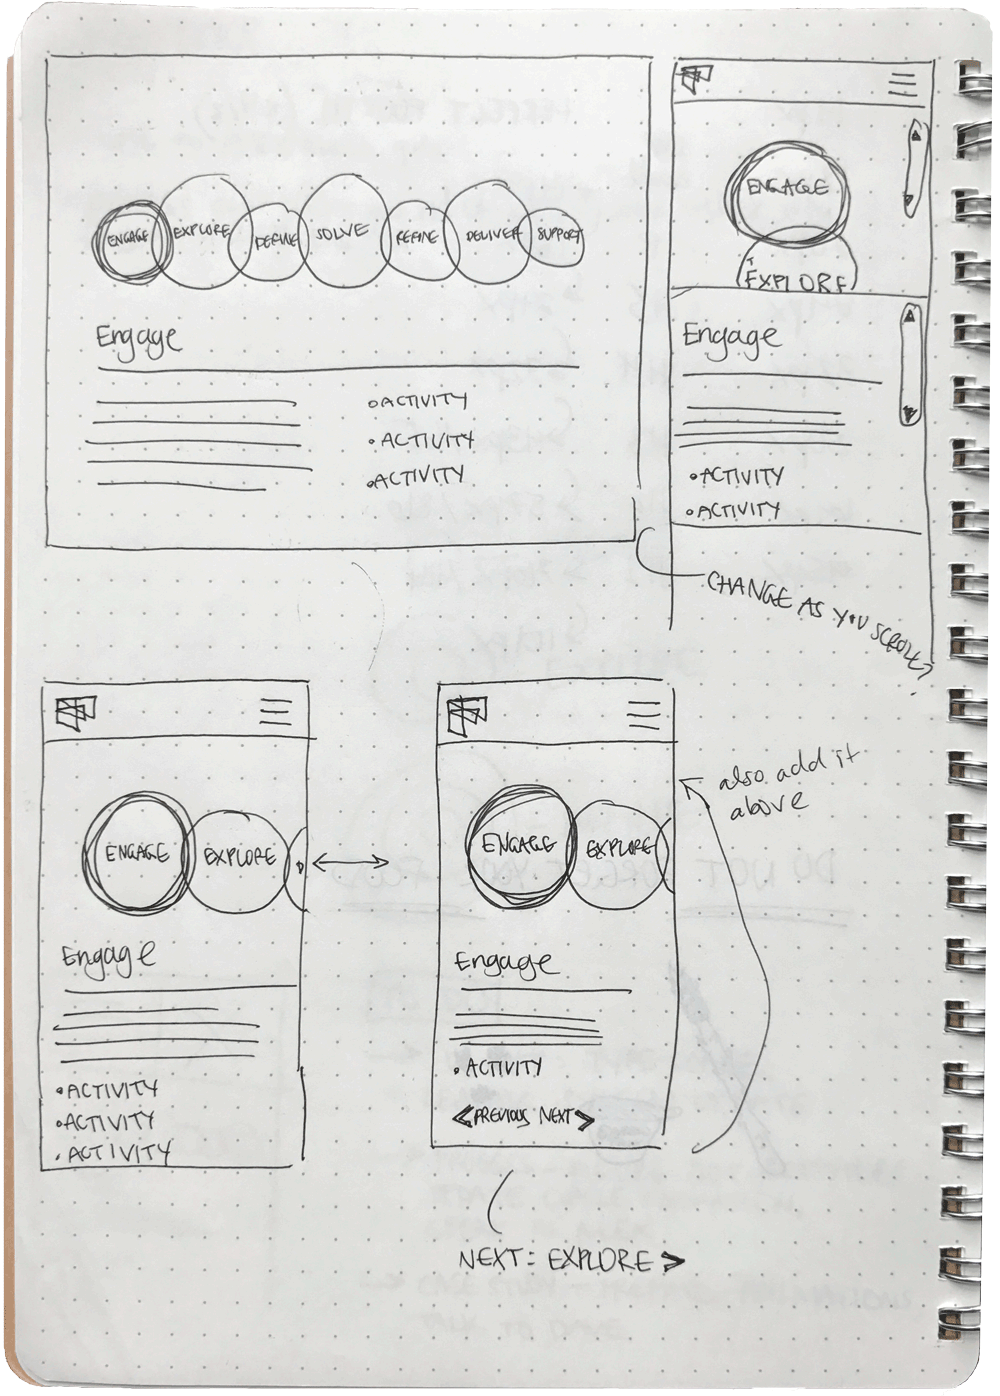 ENGAGE EXPLORE DEFINE SOLVE REFINE DELIVER SUPPORT
Engage
•ACTIVITY
•ACTIVITY
•ACTIVITY
ENGAGE
EXPLORE
Engage
•ACTIVITY
•ACTIVITY
CHANGE AS YOU SCROLL?
ENGAGE EXPLORE D
Engage
•ACTIVITY
•ACTIVITY
•ACTIVITY
ENGAGE EXPLORE
Engage
•ACTIVITY
<PREVIOUS NEXT>
also add it
above
NEXT: EXPLORE >